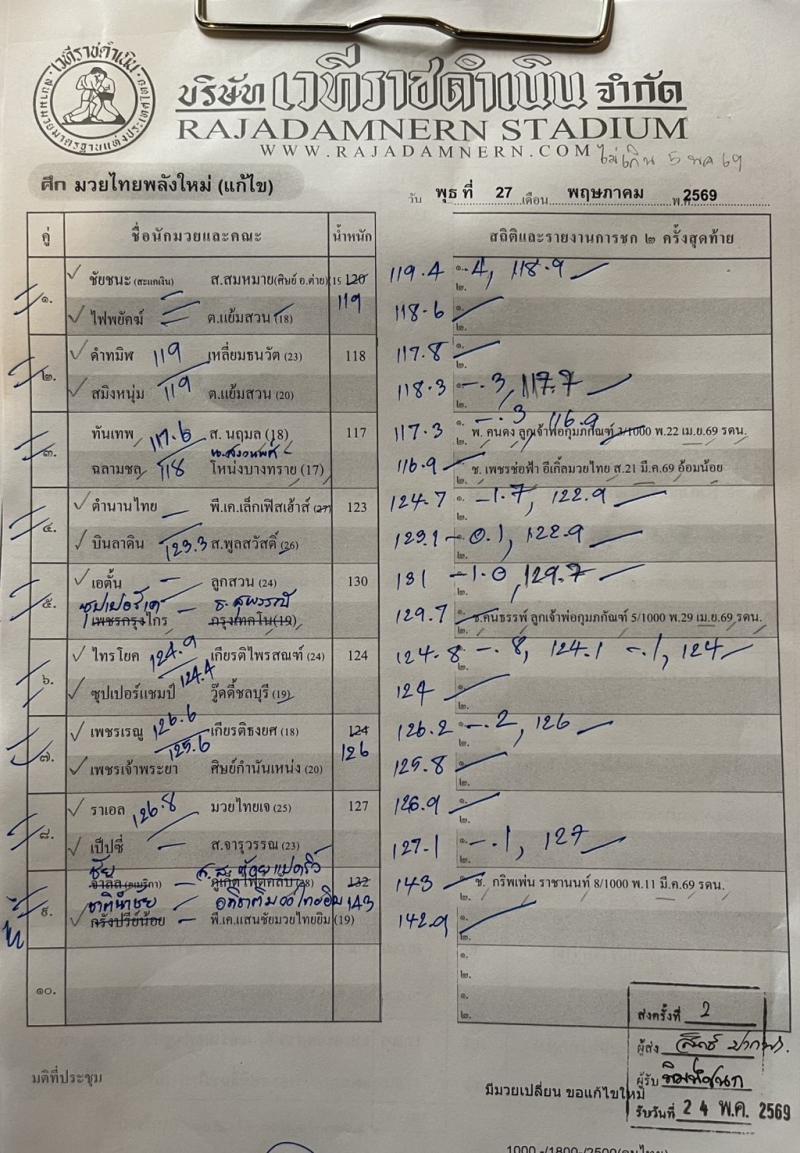 เวทีราชดำเนิน
สนามมวยมาตรฐานแห่งประเทศไทย
บริษัท เวทีราชดำเนิน จำกัด
RAJADAMNERN STADIUM
WWW.RAJADAMNERN.COM
ไม่เกิน 5 พค 69
ศึก มวยไทยพลังใหม่ (แก้ไข)
วัน พุธ ที่ 27 เดือน พฤษภาคม พ.ศ. 2569
คู่ ชื่อนักมวยและคณะ น้ำหนัก สถิติและรายงานการชก ๒ ครั้งสุดท้าย
๑. ชัยชนะ (สะแดเงิน) ส.สมหมาย(ศิษย์ อ.ต่าย) 15 120 119 119.4 ๑. -.4, 118.9
๒.
ไฟพยัคฆ์ ต.แย้มสวน (18) 118.6 ๑.
๒.
๒. ดำทมิฬ 119 เหลี่ยมธนวัต (23) 118 117.8 ๑.
๒.
สมิงหนุ่ม 119 ต.แย้มสวน (20) 118.3 ๑. -.3, 117.7
๒.
๓. ทันเทพ 117.6 ส. นฤมล (18) 117 117.3 ๑. -.3 116.9
พ. คนดง ลูกเจ้าพ่อกุมภกัณฑ์ 3/1000 พ.22 เม.ย.69 รดน.
ฉลามชล 118 โหน่งบางทราย (17) 116.9 ช. เพชรช่อฟ้า อีเกิ้ลมวยไทย ส.21 มี.ค.69 อ้อมน้อย
๔. ตำนานไทย พี.เค.เล็กเฟิสเฮ้าส์ (27) 123 124.7 ๑. -1.7, 122.9
๒.
บินลาดิน 123.3 ส.พูลสวัสดิ์ (26) 123.1 ๑. -0.1, 122.9
๒.
๕. เอตั้น ลูกสวน (24) 130 131 ๑. -1.0, 129.7
๒.
ซุปเปอร์เค ธ.สุพรรณ
เพชรกรุงไกร กรุงเทคโน (19) 129.7 ช.คนธรรพ์ ลูกเจ้าพ่อกุมภกัณฑ์ 5/1000 พ.29 เม.ย.69 รดน.
๖. ไทรโยค 124.9 เกียรติไพรสณฑ์ (24) 124 124.8 ๑. -.8, 124.1 -.1, 124
๒.
ซุปเปอร์แชมป์ 124.4 วู๊ดดี้ชลบุรี (19) 124 ๑.
๒.
๗. เพชรเรณู 126.6 เกียรติธงยศ (18) 124 126 126.2 ๑. -.2, 126
๒.
เพชรเจ้าพระยา 125.6 ศิษย์กำนันเหน่ง (20) 125.8 ๑.
๒.
๘. ราเอล 126.8 มวยไทยเจ (25) 127 126.9 ๑.
๒.
เป็ปซี่ ส.จารุวรรณ (23) 127.1 ๑. -.1, 127
๒.
๙. ชัย 132 143 143 ช. กริพเพ่น ราชานนท์ 8/1000 พ.11 มี.ค.69 รดน.
กรังปรีย์น้อย พี.เค.แสนชัยมวยไทยยิม (19) 142.9 ๑.
๒.
๑๐. ๑.
๒.
๑.
๒.
ส่งครั้งที่ 2
ผู้ส่ง
ผู้รับ
รับวันที่ 24 พ.ค. 2569
มติที่ประชุม
มีมวยเปลี่ยน ขอแก้ไขใหม่
1000.-/1800-/2500(คนไทย)